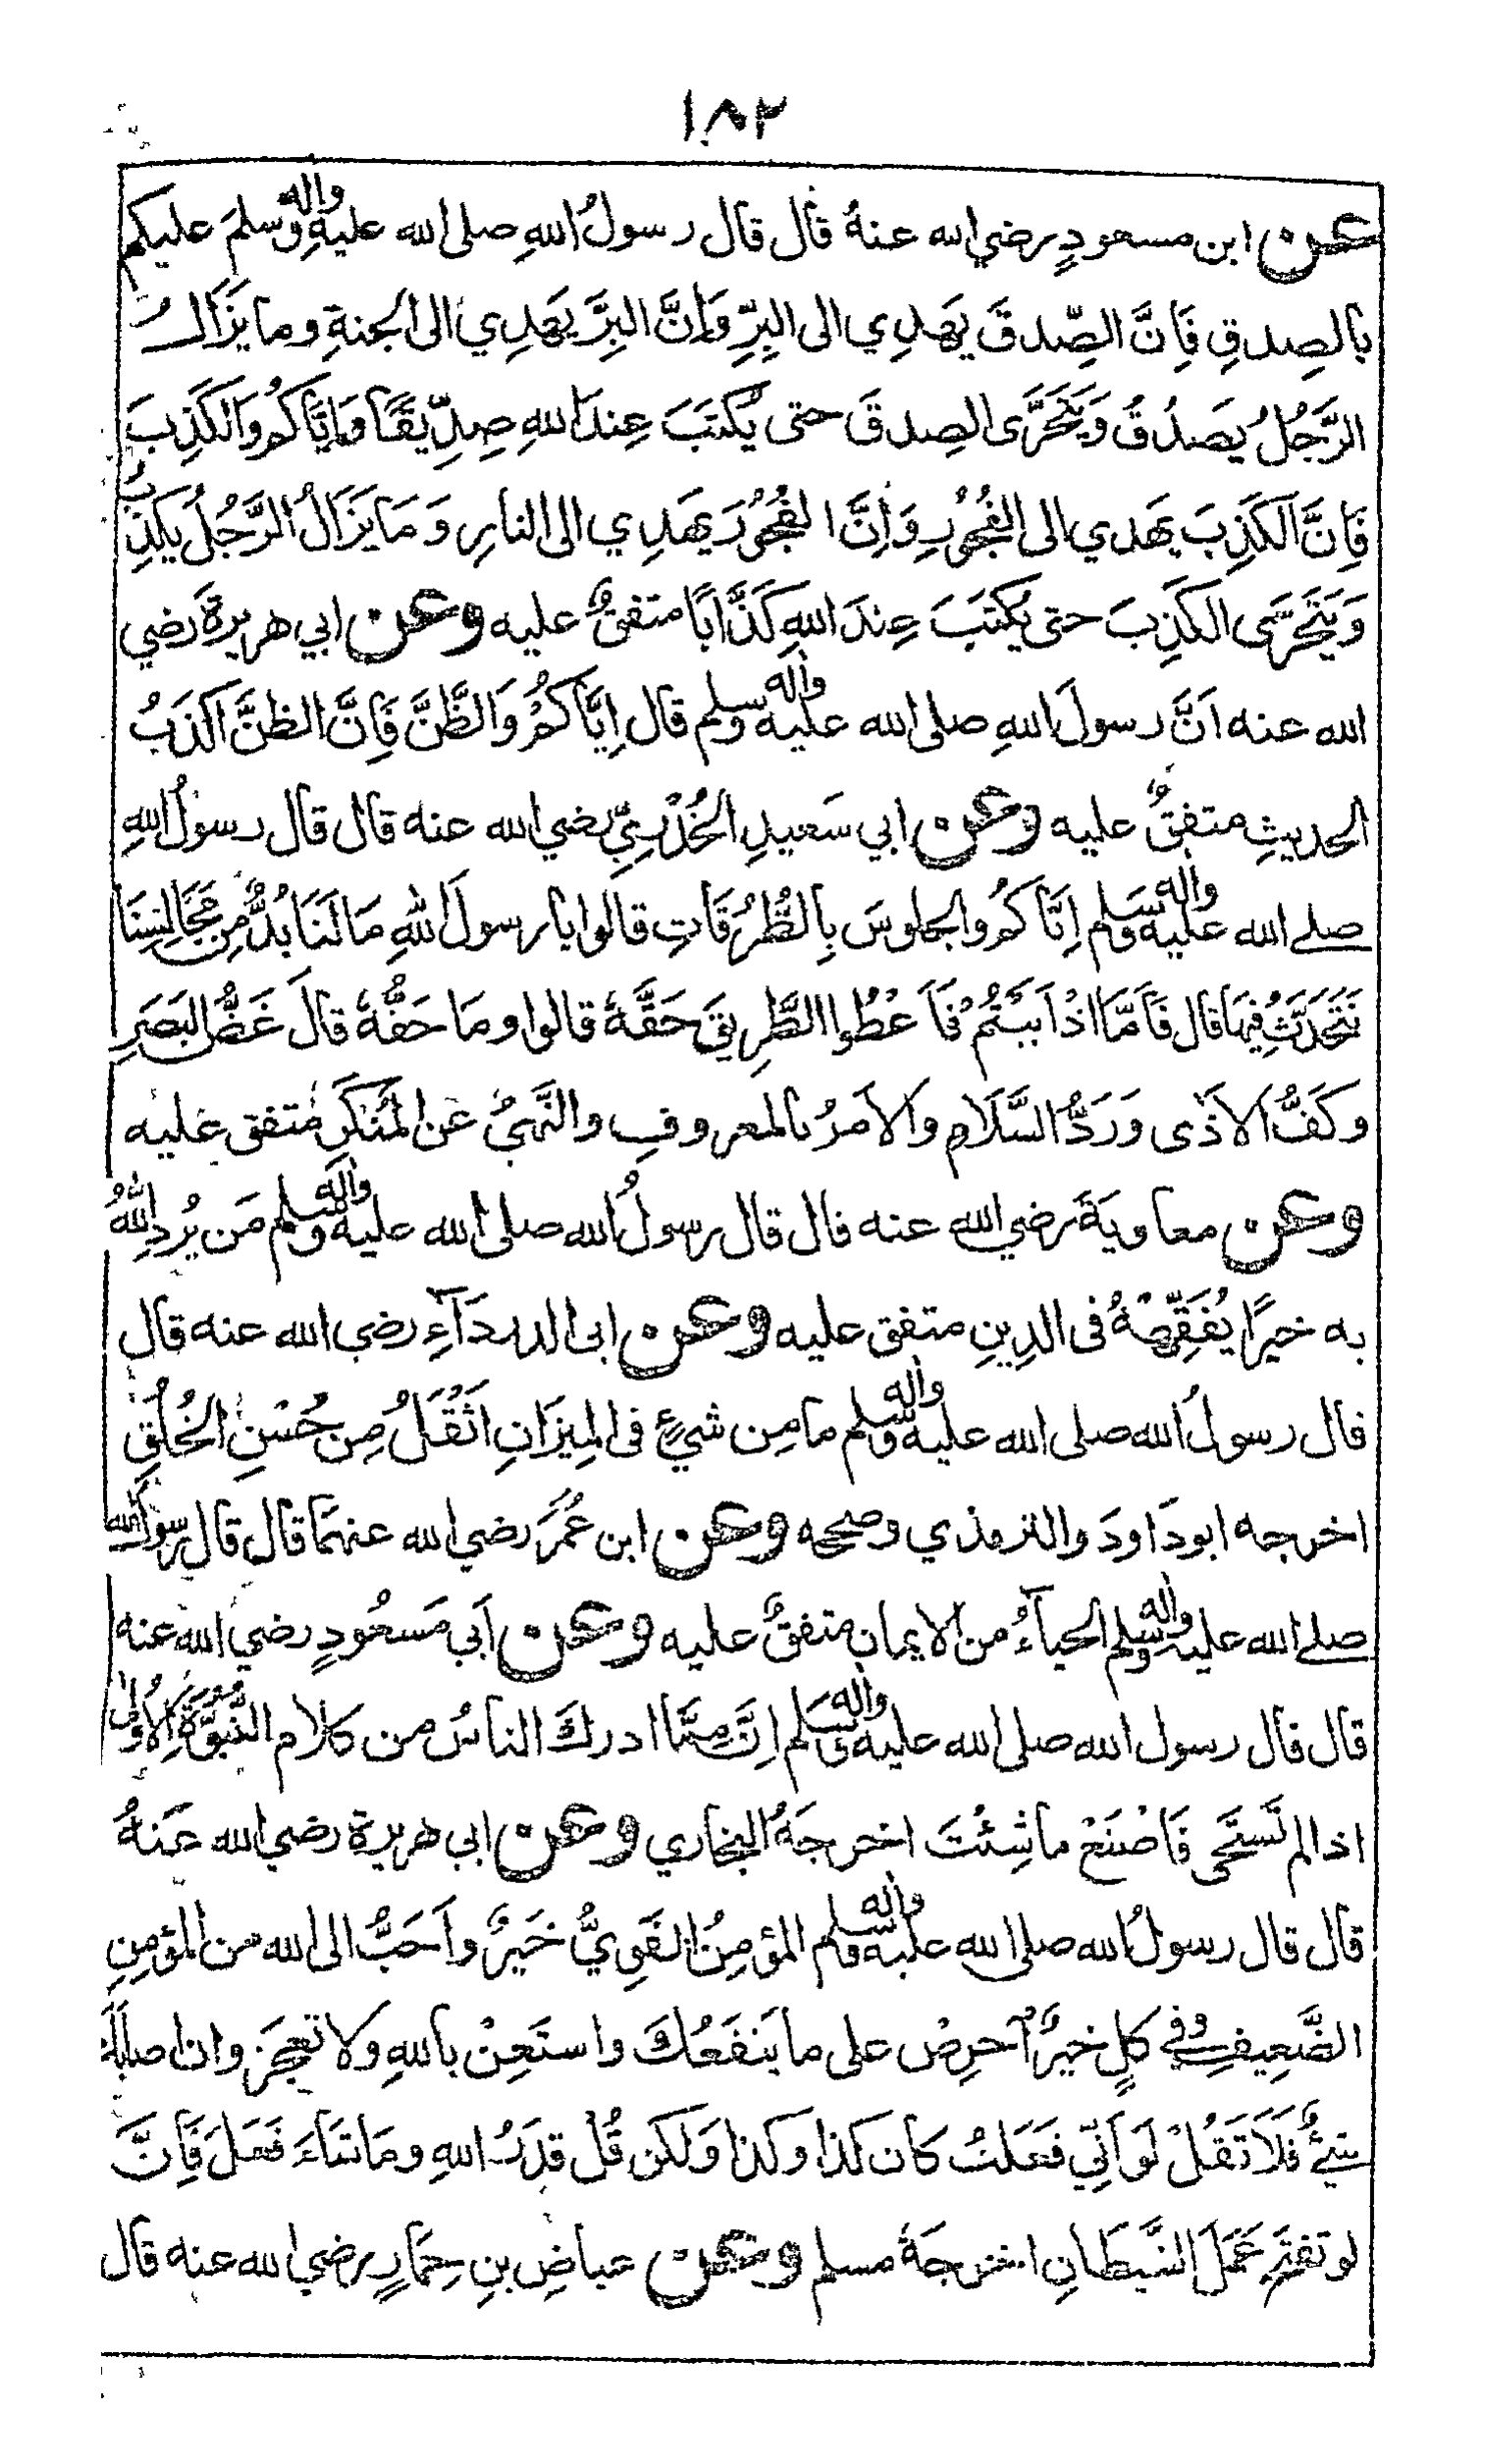 ١٨٢
عن ابن مسعودٍ رضي الله عنهُ قال قال رسولُ اللهِ صلى الله عليهِ واله وسلمَ عليكم
بالصِدقِ فَاِنَّ الصِّدقَ يَهدِي الى البِرِّ وَاِنَّ البِرَّ يَهدِي الى الجنةِ وما يَزَالُ
الرَّجُلُ يَصدُقُ وَيَتَحَرَّى الصِدقَ حتى يُكتَبَ عِندَ اللهِ صِدِّيقًا وَاِيَّاكُم وَالكَذِبَ
فَاِنَّ الكَذِبَ يَهدي الى الفُجُوْرِ وَاِنَّ الفُجُوْرَ يَهدِي الى النارِ وَمَا يَزَالُ الرَّجُلُ يَكذِبُ
وَيَتَحَرَّى الكَذِبَ حتى يُكتَبَ عِندَ اللهِ كَذَّابًا متفقٌ عليه وعن ابي هريرةَ رضي
الله عنه اَنَّ رسولَ اللهِ صلى الله عليه واله وسلم قال اِيَّاكُمْ وَالظَّنَّ فَاِنَّ الظنَّ اَكذَبُ
الحديثِ متفقٌ عليه وعن ابي سَعيدِ الخُدْرِيِّ رضي الله عنه قال قال رسولُ اللهِ
صلى الله عليه واله وسَلم اِيَّاكُم والجلوسَ بِالطُّرُقَاتِ قالوا يا رسولَ اللهِ مَا لَنَا بُدٌّ مِن مَجَالِسِنَا
نَتَحَدَّثُ فِيهَا قال فَاَمَّا اذْا اَبَيْتُمْ فَاَعْطُوا الطَّرِيقَ حَقَّهُ قالوا وما حَقُّهُ قالَ غَضُّ البَصَرِ
وكَفُّ الاَذَى وَرَدُّ السَّلَامِ والاَمرُ بالمعروفِ والنَّهيُ عَنِ المُنكَرِ متفق عليه
وعن معاويَةَ رضي الله عنه قال قال رسولُ الله صلى الله عليه واله وسلم مَن يُرِدِ اللهُ
به خيرًا يُفَقِّههُ في الدِينِ متفق عليه وعن ابى الدردَآءِ رضي الله عنه قال
قال رسولُ الله صلى الله عليه واله وسلم ما مِن شيءٍ في المِيزَانِ اَثقَلُ مِن حُسْنِ الخُلُقِ
اخرجه ابو دَاودَ والترمذي وصححه وعن ابن عُمَرَ رضي الله عنهمَا قال قال رسولُ الله
صلى الله عليه واله وسلم الحياَءُ من الايمان متفقٌ عليه وعن اَبي مَسعُودٍ رضي الله عنه
قال قال رسول الله صلى الله عليه واله وسلم اِنَّ مِمَّا ادركَ الناسُ من كلام النُّبُوَّةِ الاُولَى
اذا لم تَستَحي فَاصْنَعْ ما شِئتَ اخرجهُ البخاري وعن ابي هريرة رضي الله عَنهُ
قال قال رسولُ الله صلى الله عليه واله وسلم المؤمِنُ القَوِيُّ خَيرٌ واَحَبُّ الى الله من المؤمِنِ
الضَّعِيفِ وفي كلٍ خيرٌ اَحرِصْ على ما يَنفَعُكَ واستَعِنْ باللهِ ولا تعجَز وان اصابَكَ
شيءٌ فَلَا تَقُلْ لَو اَنِّي فَعَلتُ كان كذا وكذا وَلكن قُل قدَّرَ اللهِ وما شاءَ فَعَلَ فَاِنَّ
لو تفتَح عَمَلَ الشَّيطَانِ اخرجَهُ مسلم وعن عياضِ بنِ حِمَارٍ رضي الله عنه قال